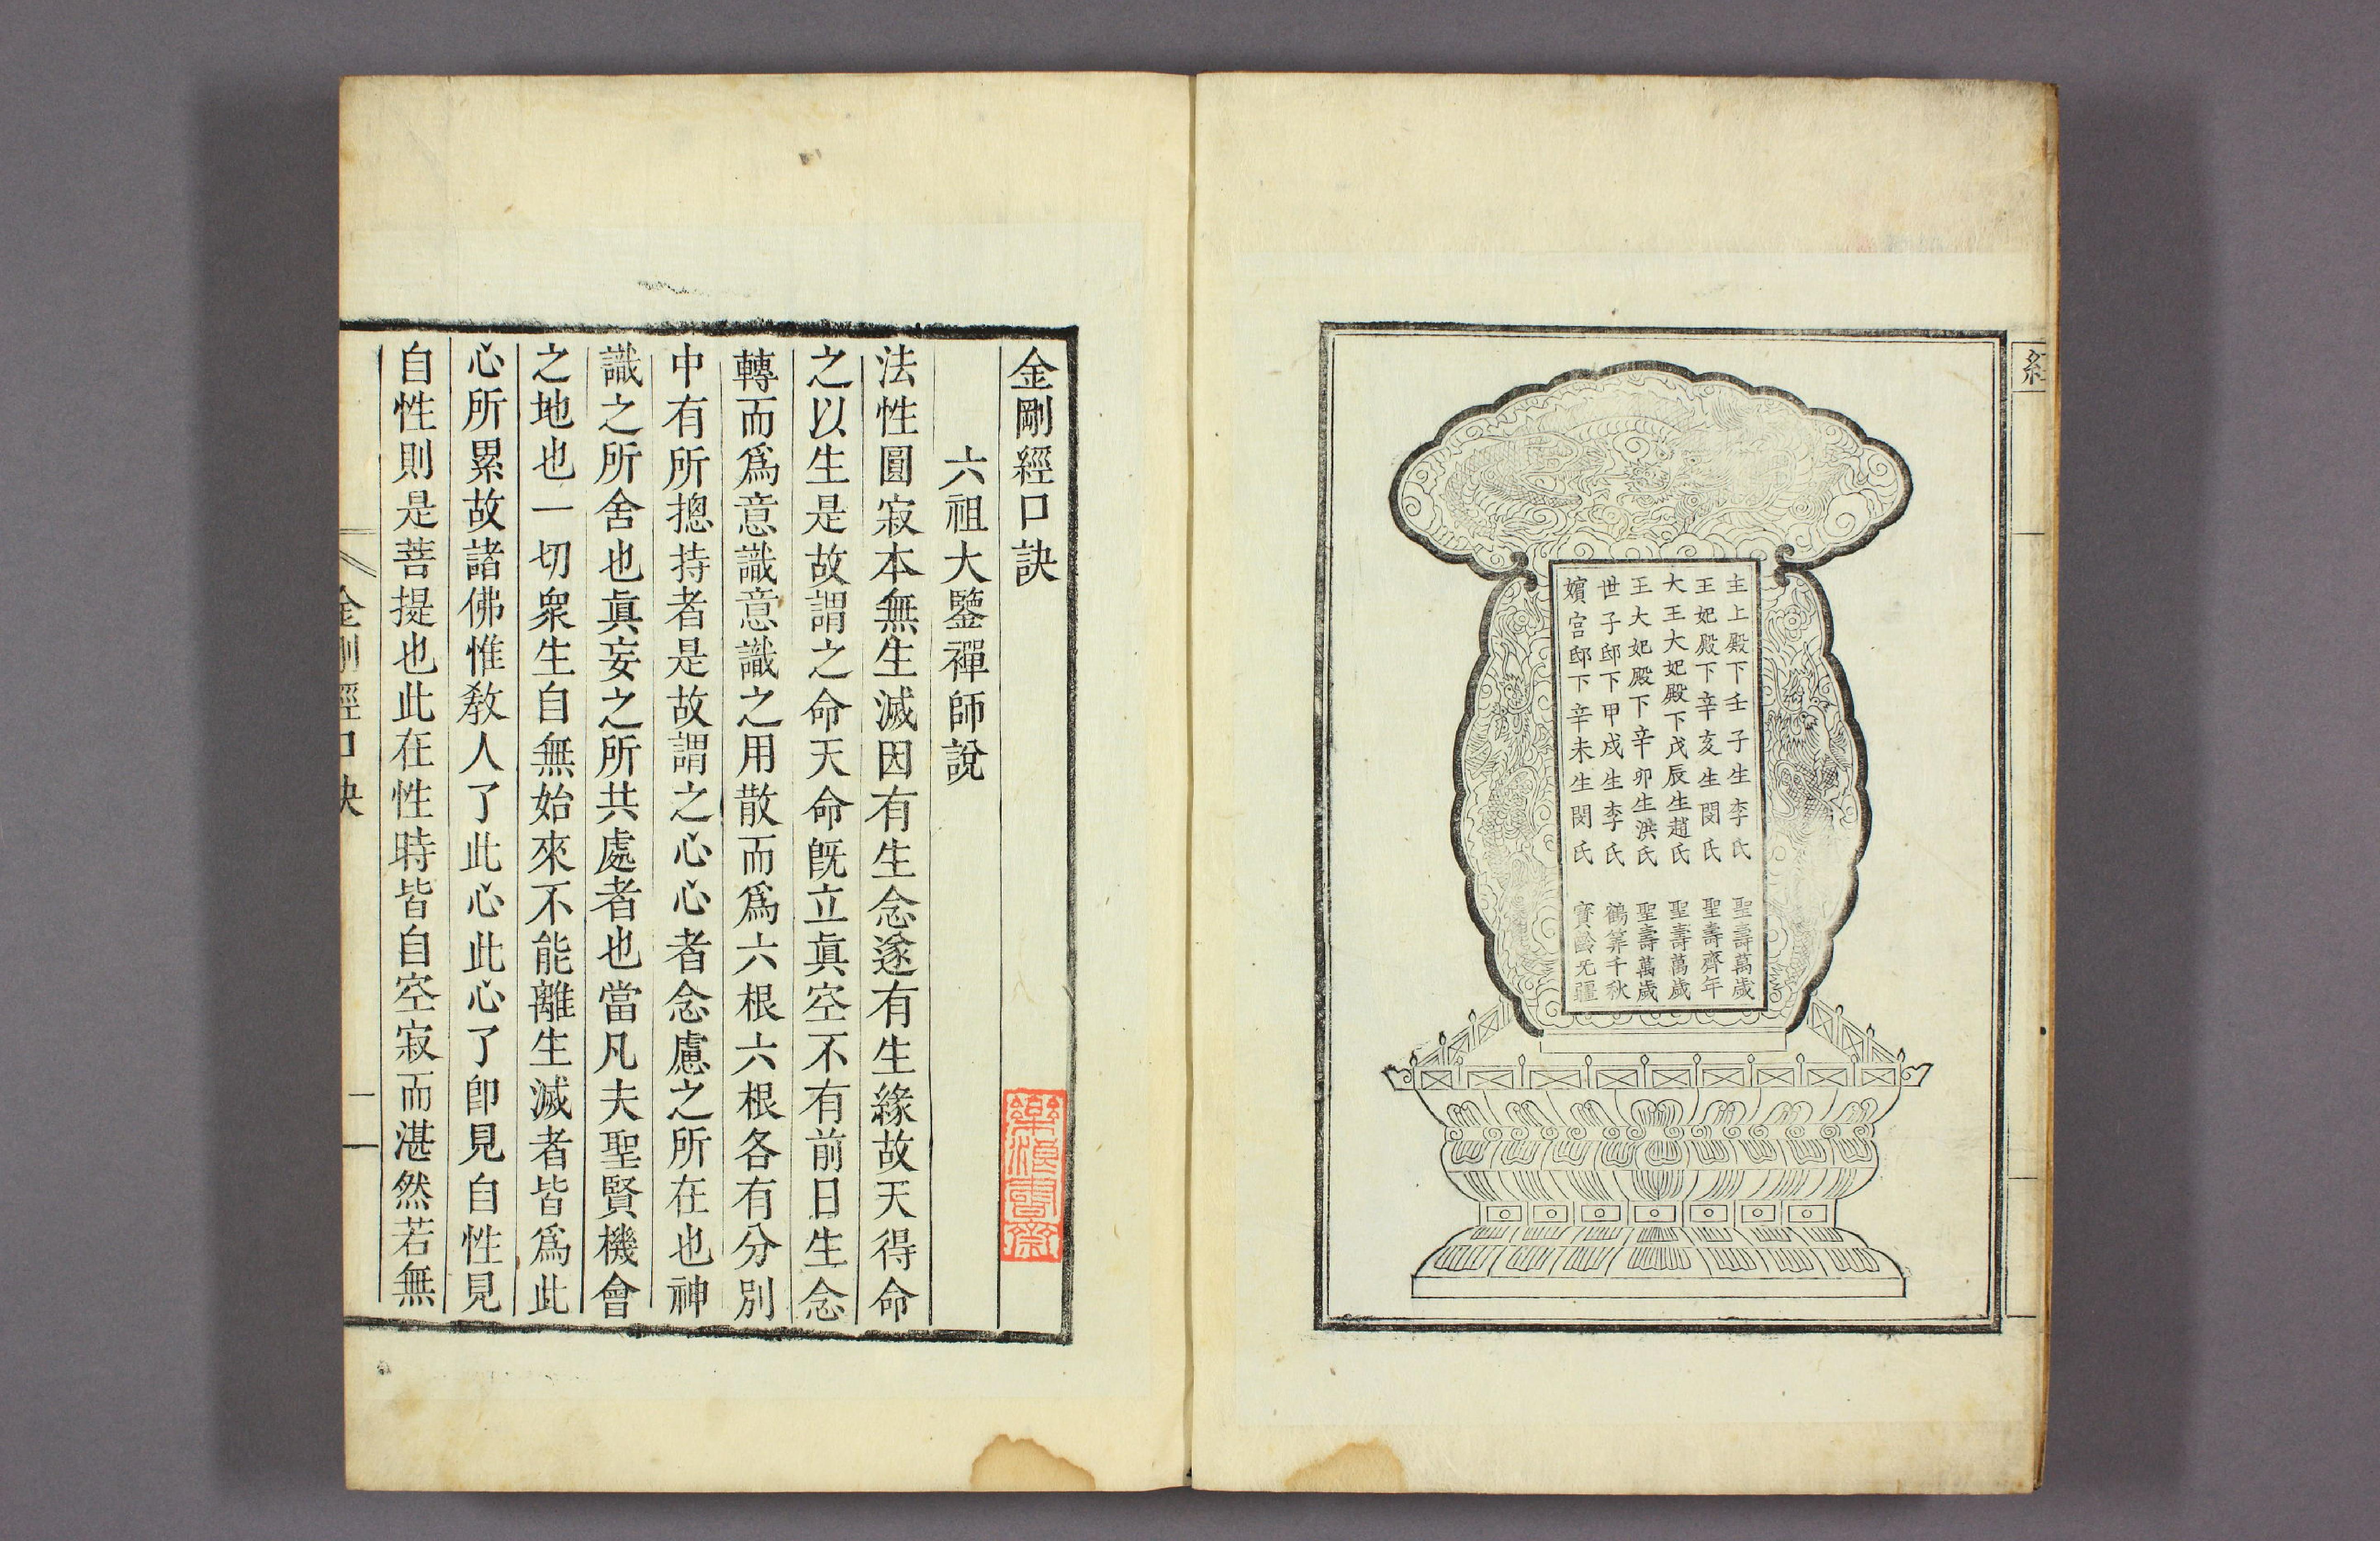 經
主上殿下壬子生李氏　聖壽萬歲
王妃殿下辛亥生閔氏　聖壽齊年
大王大妃殿下戊辰生趙氏　聖壽萬歲
王大妃殿下辛卯生洪氏　聖壽萬歲
世子邸下甲戌生李氏　鶴筭千秋
嬪宮邸下辛未生閔氏　寶齡无疆
金剛經口訣
六祖大鑒禪師說
法性圓寂本無生滅因有生念遂有生緣故天得命
之以生是故謂之命天命旣立眞空不有前日生念
轉而爲意識意識之用散而爲六根六根各有分別
中有所摠持者是故謂之心心者念慮之所在也神
識之所舍也眞妄之所共處者也當凡夫聖賢機會
之地也一切衆生自無始來不能離生滅者皆爲此
心所累故諸佛惟敎人了此心此心了卽見自性見
自性則是菩提也此在性時皆自空寂而湛然若無
金剛經口訣
一
樂浪書齋